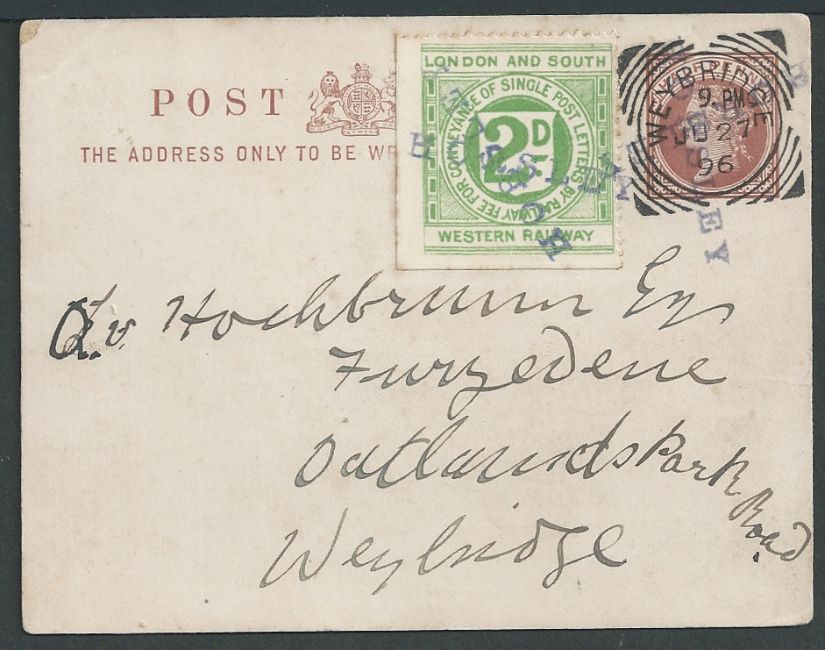 POST
THE ADDRESS ONLY TO BE WR
LONDON AND SOUTH
FEE FOR CONVEYANCE OF SINGLE POST LETTERS BY RAILWAY
2D
WESTERN RAILWAY
WEYBRIDGE
9. PM
JU 27
96
v. Hochbrunn Esq
Furzedene
Oatlands Park
Road
Weybridge